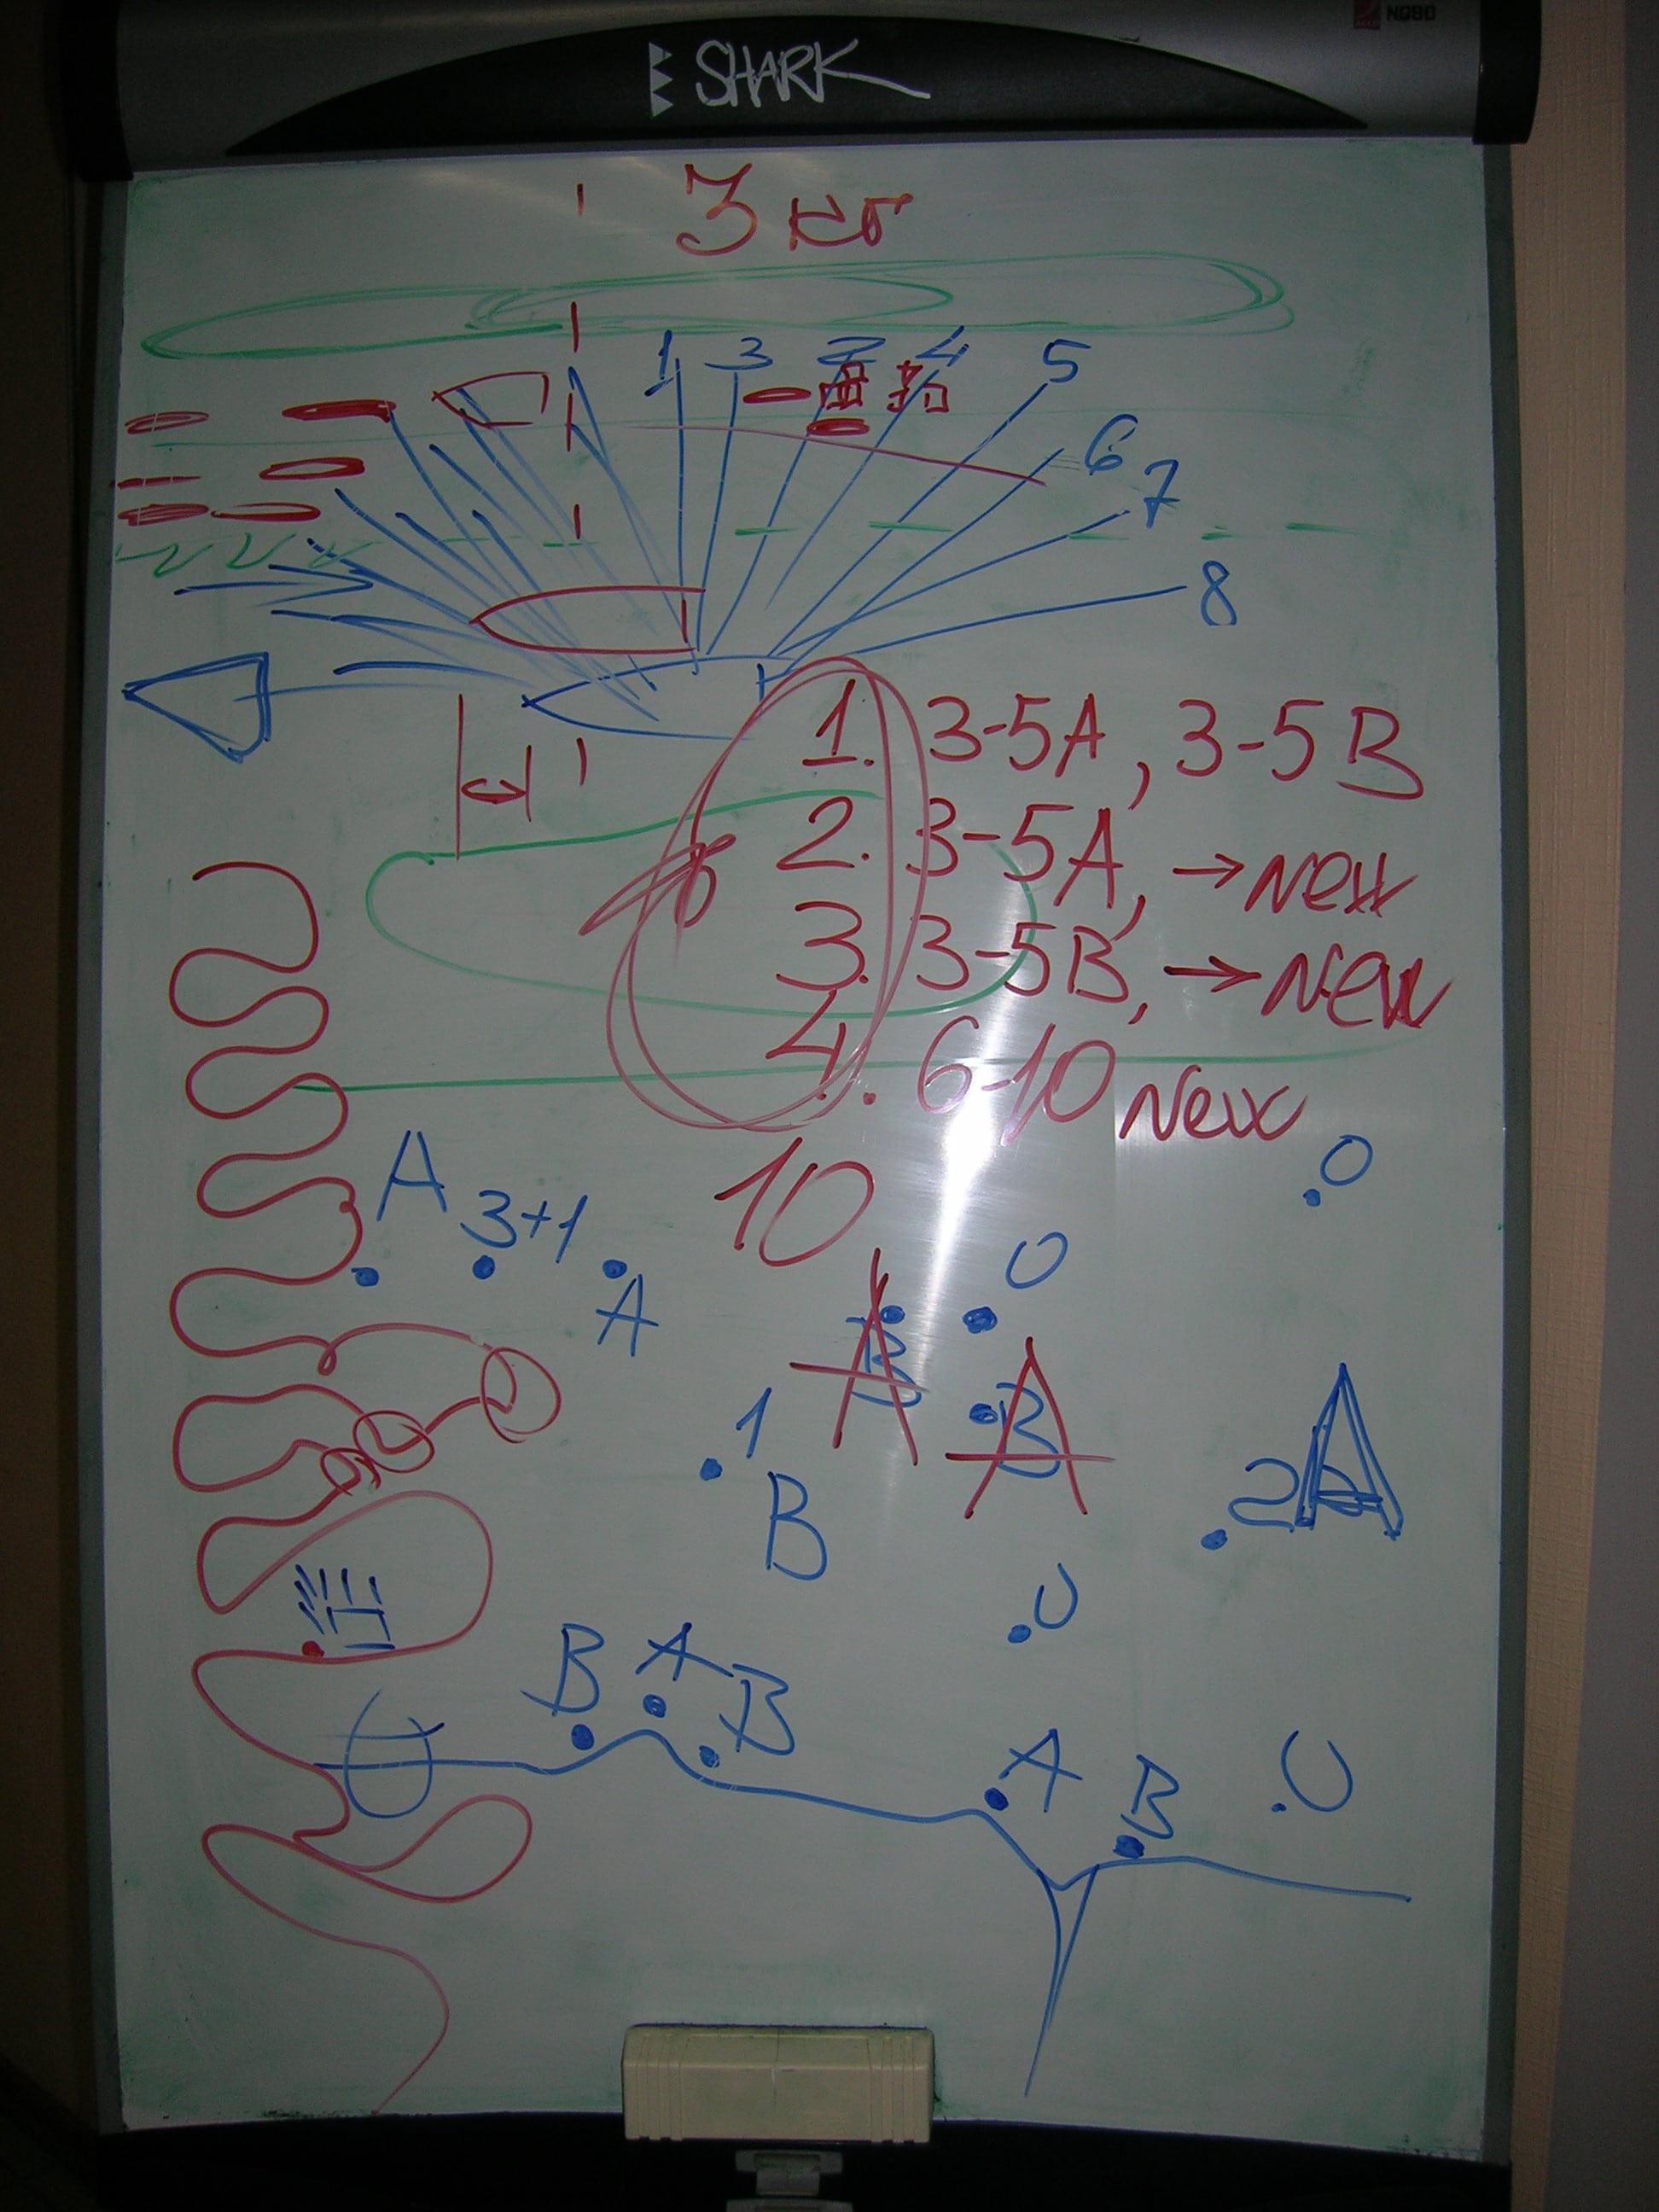 NOBO
SHARK
3 кг
1 3 2 4 5
6
7
8
1. 3-5A, 3-5B
2. 3-5A, → New
3. 3-5B, → New
4. 6-10 New
10
A
3+1
A
O
O
B
A
B
A
1
B
2
A
B A B
A
B